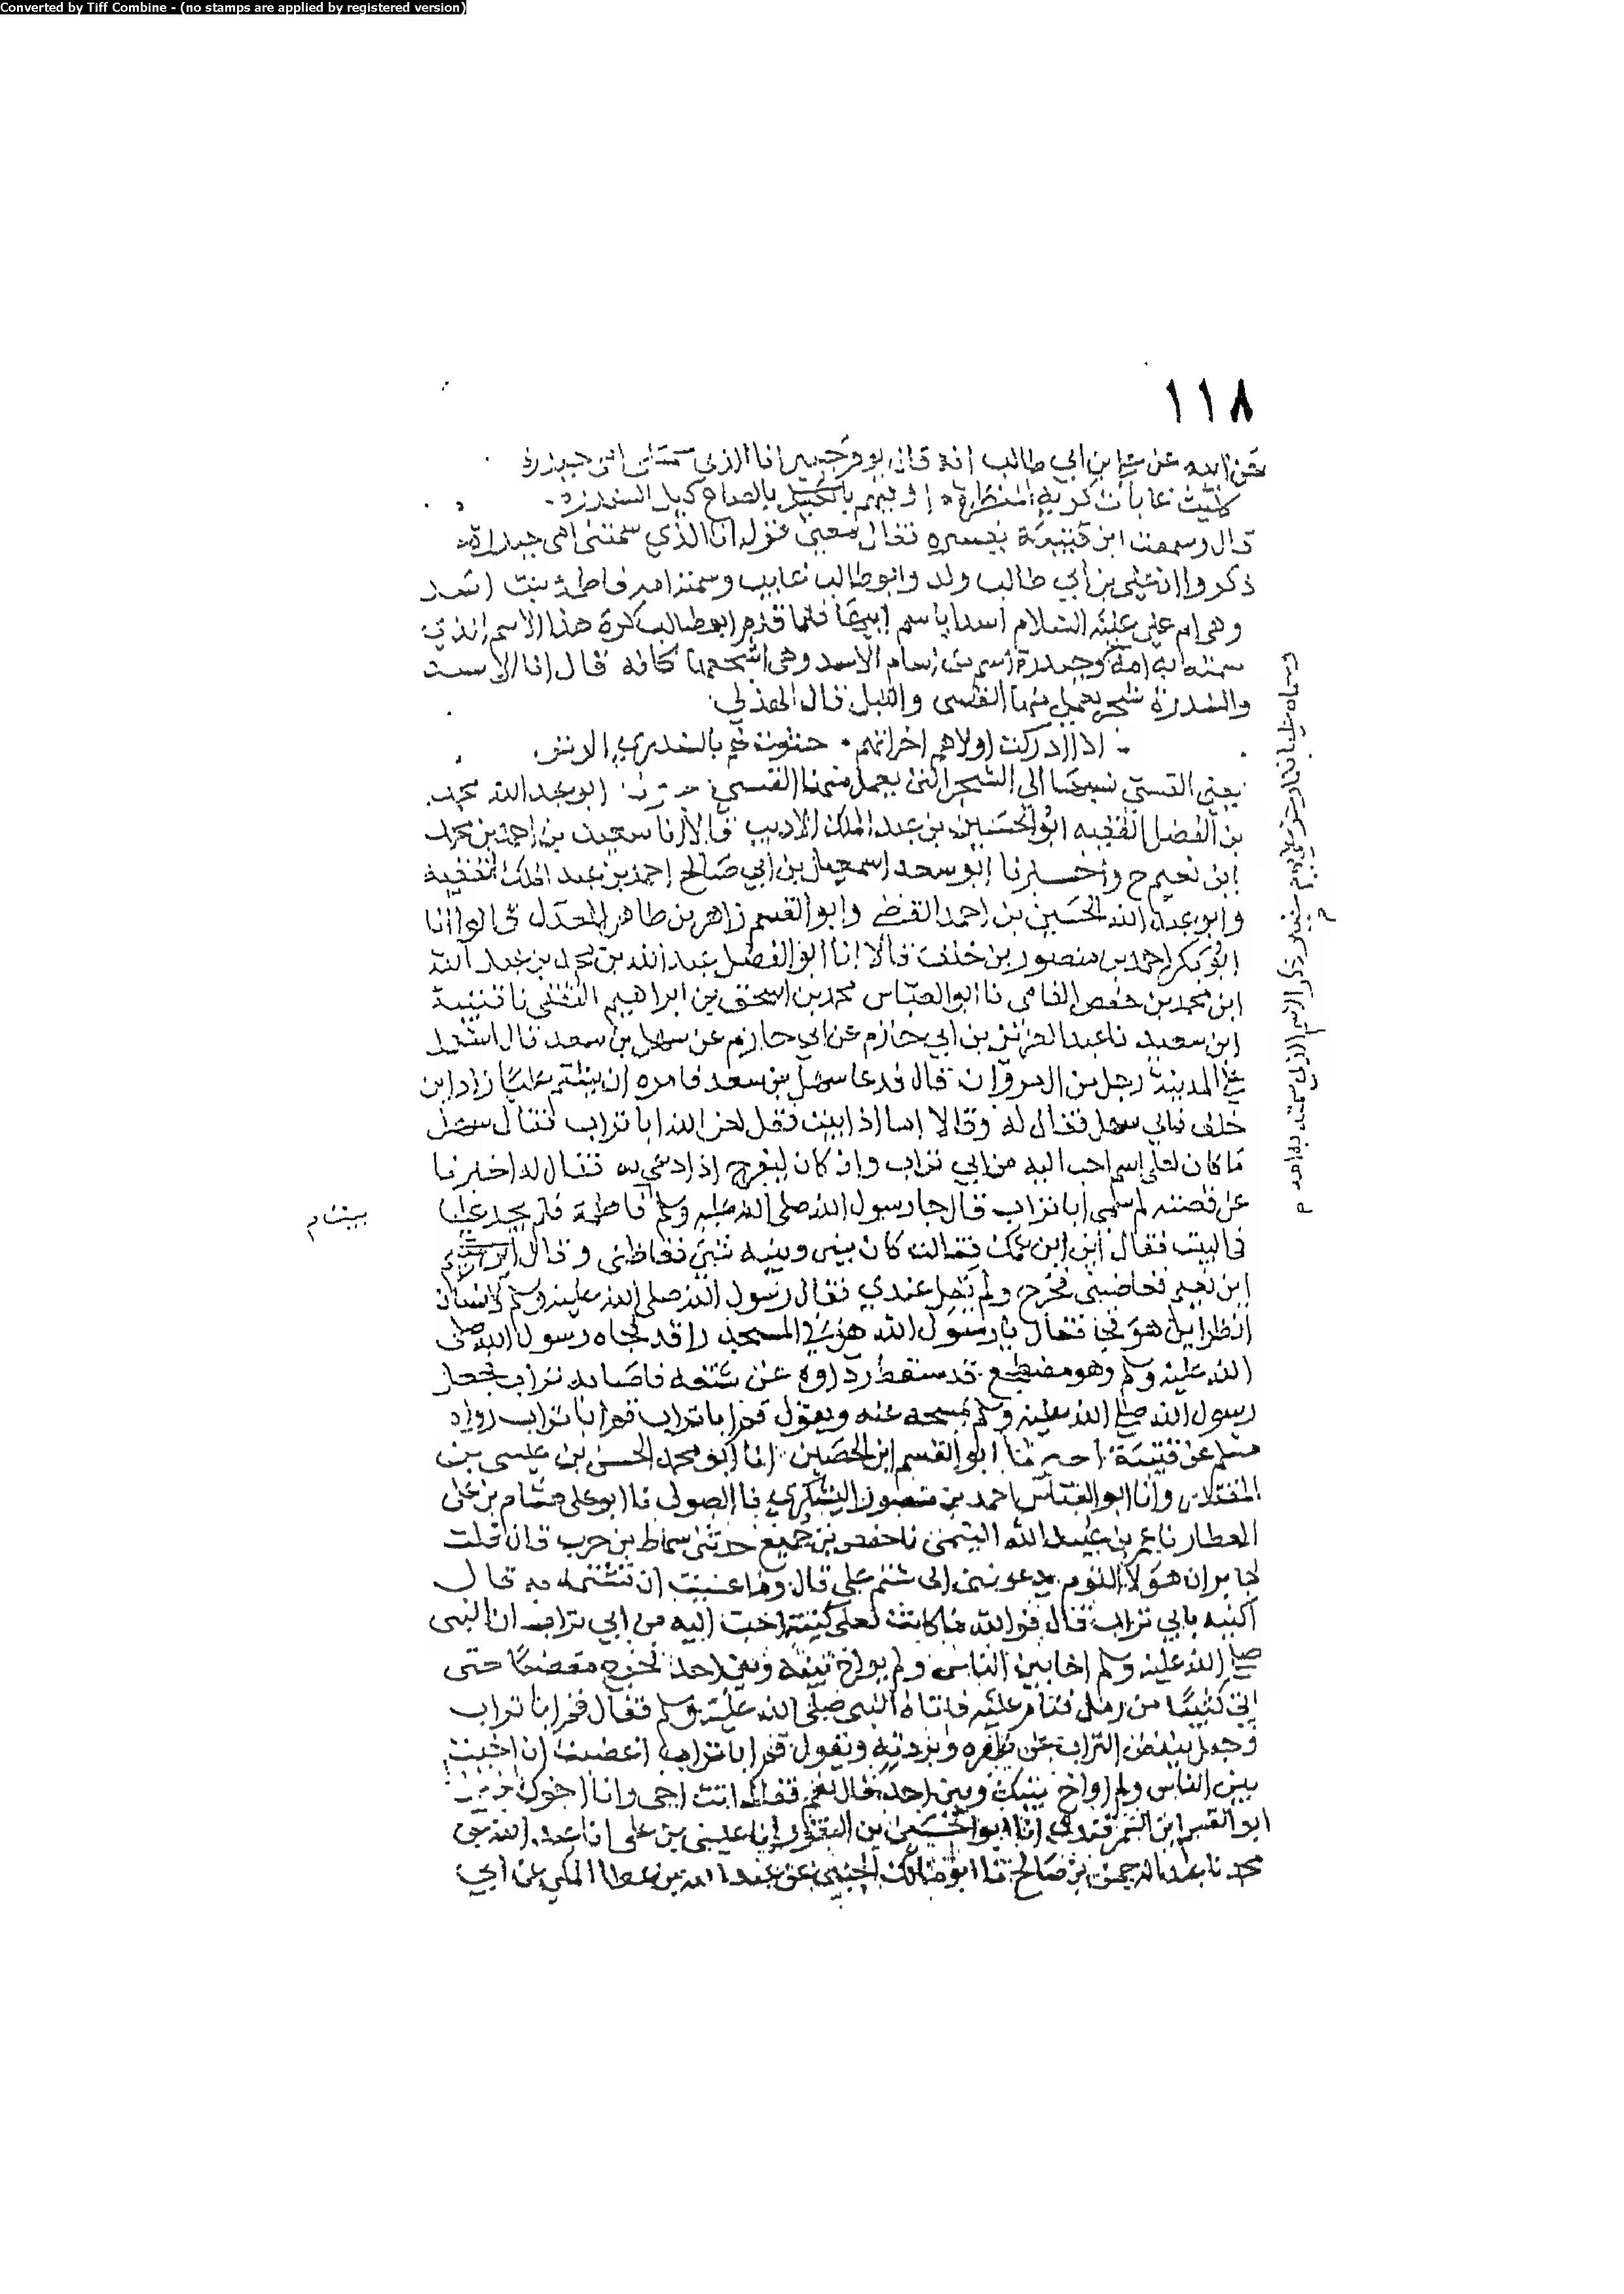 Converted by Tiff Combine - (no stamps are applied by registered version)
١١٨
عن ابيه عن علي بن ابي طالب انه قال يوم خيبر انا الذي سمتني امي حيدرة
كليث غابات كريه المنظرة اوفيهم بالصاع كيل السندرة
قال وسمعت ابن قتيبة يفسره فقال معنى قوله انا الذي سمتني امي حيدرة
ذكروا ان علي بن ابي طالب ولد وابو طالب غايب وسمته امه فاطمة بنت اسد
وهي ام علي عليه السلام اسدا باسم ابيها فلما قدم ابو طالب كره هذا الاسم الذي
سمته به امه وحيدرة اسم من اسام الاسد وهي اشجعها كانه قال انا الاسد
والسندرة شجر يعمل منها القسى والنبل قال الهذلي
اذا ادركت اولاهم اخراتهم حنوت لهم بالسندري الموتر
يعني القسي نسبها الى الشجر التي يعمل منها القسي ابو عبد الله محمد
بن الفضل الفقيه ابو الحسين بن عبد الملك الاديب قالا انا سعيد بن احمد بن محمد
ابن نعيم ح واخبرنا ابو سعد اسمعيل بن ابي صالح احمد بن عبد الملك الفقيه
وابو عبد الله الحسين بن احمد وابو القسم زاهر بن طاهر المعدل قالوا انا
ابو بكر احمد بن منصور بن خلف قالا انا ابو الفضل عبد الله بن محمد بن عبد الله
ابن محمد بن حفص الفامي نا ابو العباس محمد بن اسحق بن ابراهيم الثقفي نا قتيبة
ابن سعيد نا عبد العزيز بن ابي حازم عن ابي حازم عن سهل بن سعد قال استعمل
على المدينة رجل من ال مروان قال فدعا سهل بن سعد فامره ان يشتم عليا زاد ابن
خلف فابى سهل فقال له وقالا اما اذا ابيت فقل لعن الله ابا تراب فقال سهل
ما كان لعلي اسم احب اليه من ابي تراب وان كان ليفرح اذا دعي به فقال له اخبرنا
عن قصته لم سمى ابا تراب قال جا رسول الله صلى الله عليه وسلم فاطمة فلم يجد عليا
بيت م
في البيت فقال اين ابن عمك فقالت كان بيني وبينه شي فغاظني وقال
ابن نعيم فغاضبني فخرج ولم يقل عندي فقال رسول الله صلى الله عليه وسلم لانسان
انظر اين هو فجا فقال يا رسول الله هو في المسجد راقد فجاه رسول الله صلى
الله عليه وسلم وهو مضطجع قد سقط رداوه عن شقه فاصابه تراب فجعل
رسول الله صلى الله عليه وسلم يمسحه عنه ويقول قم ابا تراب قم ابا تراب رواه
مسلم عن قتيبة اخبرنا ابو القسم ابن الحصين انا ابو محمد الحسن بن عيسى بن
المقتدر وانا ابو العباس احمد بن منصور اليشكري نا الصولي نا ابو علي هشام بن علي
العطار نا عمر بن عبيد الله التيمي نا حفص بن جميع حدثني سماك بن حرب قال قلت
لجابر ان هولا القوم يدعونني الى شتم علي قال وما عسيت ان تشتمه به قال
اكنيه بابي تراب قال فوالله ما كانت لعلي كنية احب اليه من ابي تراب ان النبي
صلى الله عليه وسلم اخا بين الناس ولم يواخ بينه وبين احد فخرج مغضبا حتى
اتى كثيبا من رمل فنام عليه فاتاه النبي صلى الله عليه وسلم فقال قم ابا تراب
وجعل ينفض التراب عن ظهره وبردته ويقول قم ابا تراب اغضبت ان اخيت
بين الناس ولم اواخ بينك وبين احد قال نعم فقال انت اخي وانا اخوك
ابو القسم ابن السمرقندي انا ابو الحسين بن النقور انا عيسى بن علي انا عبد الله بن
محمد نا عبد الرحمن بن صالح نا ابو مالك الجنبي عن عبد الله بن عطا المكي عن ابي
وسماه عليا فلما رجز علي يوم خيبر ذكر الاسم الذي سمته به امه م